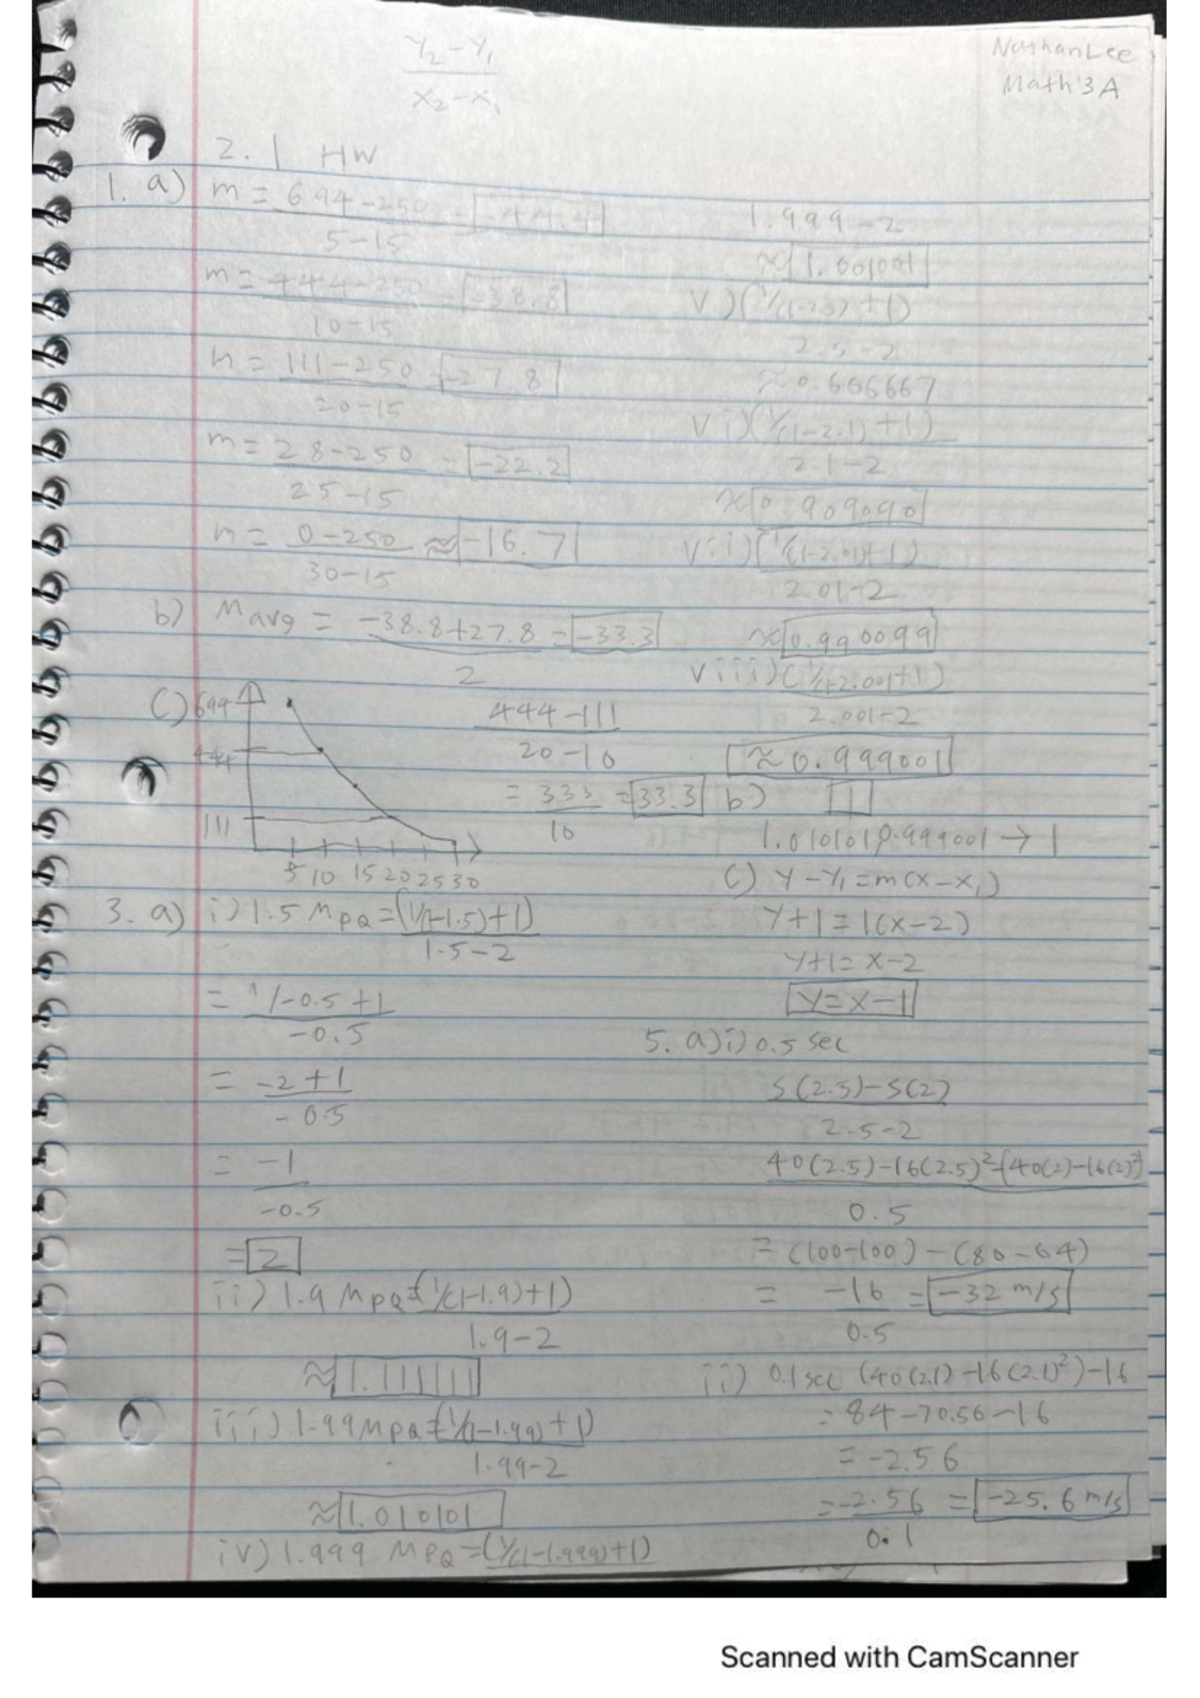 Y₂-Y₁
X₂-X₁
Nathan Lee
Math 3A
2.1 HW
1. a) m = 694-250 = -44.4
5-15
m = 444-250 = -38.8
10-15
m = 111-250 = -27.8
20-15
m = 28-250 = -22.2
25-15
m = 0-250 ≈ -16.7
30-15
b) Mavg = -38.8+27.8 = -33.3
2
c) 694
444
111
5 10 15 20 25 30
444-111
20-10
= 333 = 33.3
10
3. a) i) 1.5 MPQ = (1/(1-1.5)+1)
1.5-2
= 1/-0.5+1
-0.5
= -2+1
-0.5
= -1
-0.5
= 2
ii) 1.9 MPQ = (1/(1-1.9)+1)
1.9-2
≈ 1.111111
iii) 1.99 MPQ = (1/(1-1.99)+1)
1.99-2
≈ 1.010101
iv) 1.999 MPQ = (1/(1-1.999)+1)
1.999-2
≈ 1.001001
v) (1/(1-2.5)+1)
2.5-2
≈ 0.666667
vi) (1/(1-2.1)+1)
2.1-2
≈ 0.909090
vii) (1/(1-2.01)+1)
2.01-2
≈ 0.990099
viii)
2.001-2
≈ 0.999001
b) 1
→ 1
c) Y-Y₁=m(x-x₁)
Y+1=1(x-2)
Y+1=x-2
Y=x-1
5. a) i) 0.5 sec
s(2.5)-s(2)
2.5-2
40(2.5)-16(2.5)²-(40(2)-16(2)²)
0.5
= (100-100)-(80-64)
= -16 = -32 m/s
0.5
ii) 0.1 sec (40(2.1)-16(2.1)²)-16
= 84-70.56-16
= -2.56
= -2.56 = -25.6 m/s
0.1
Scanned with CamScanner